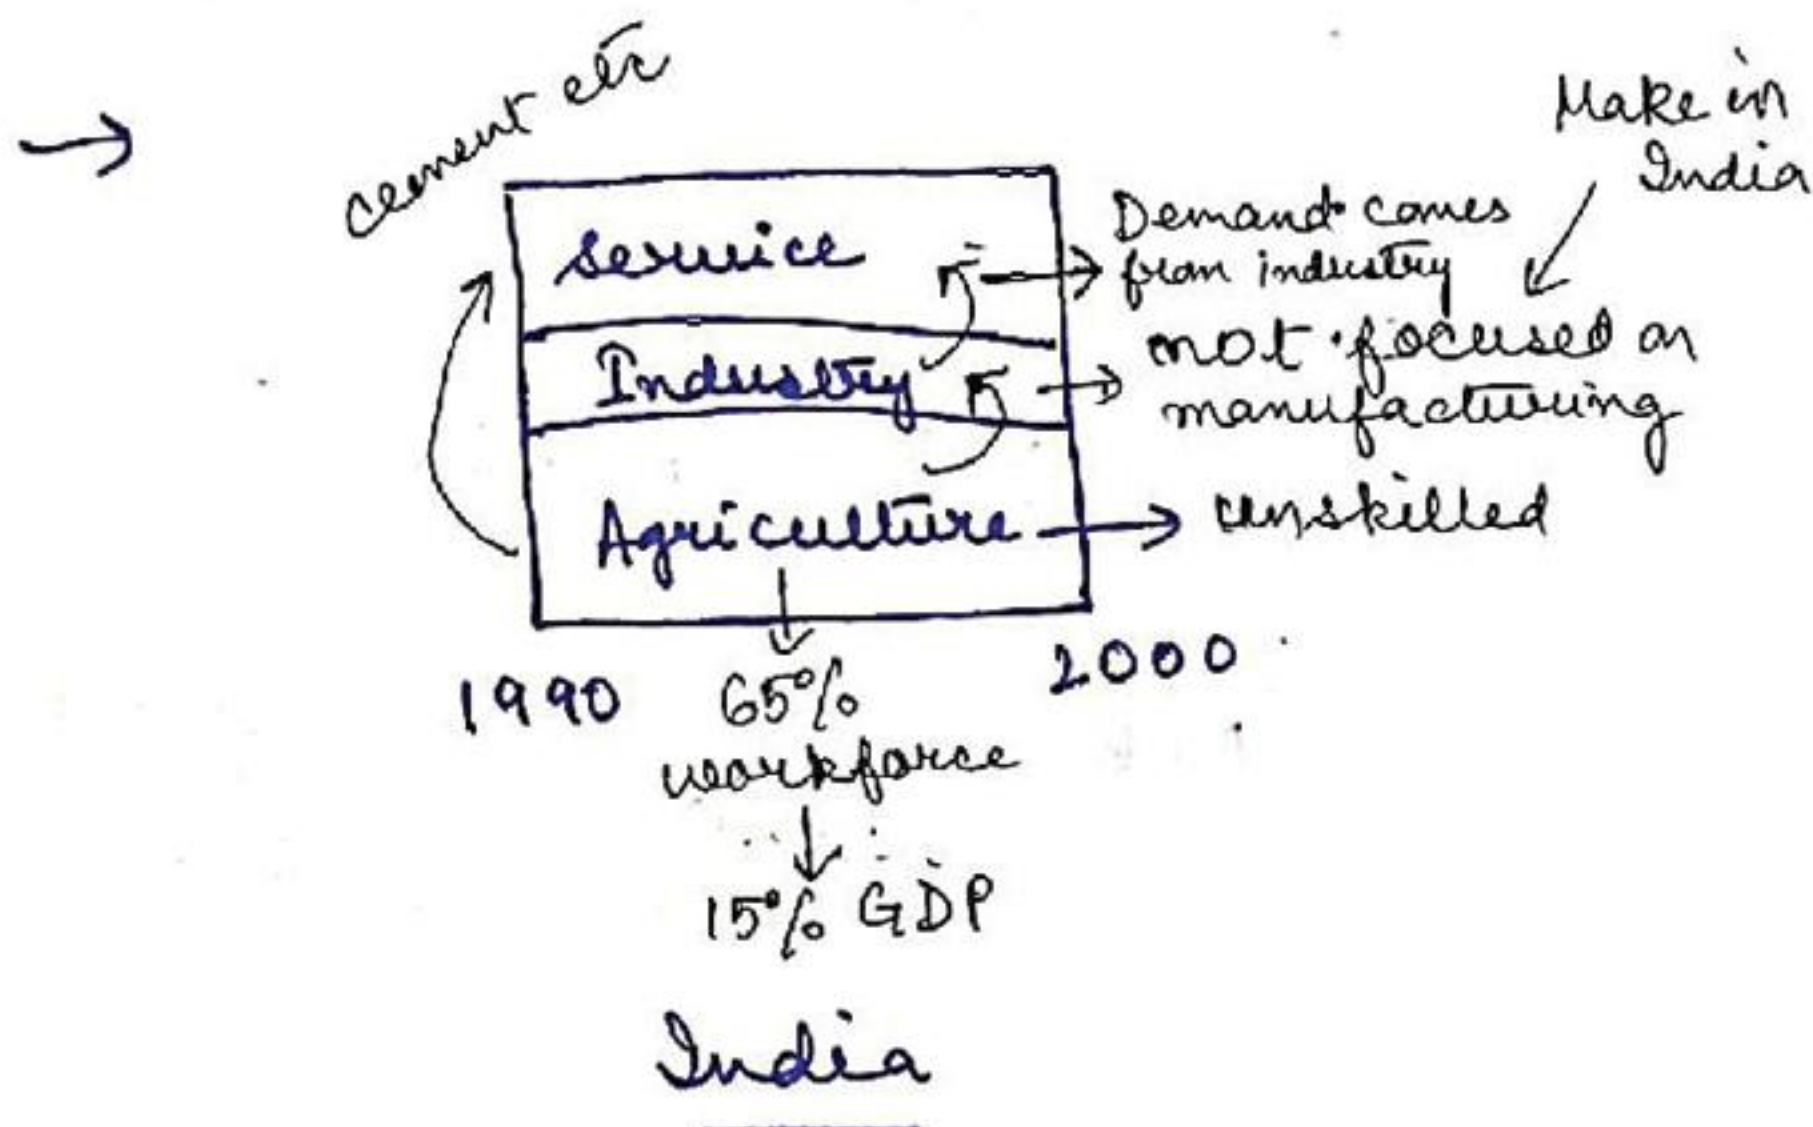 cement etc
Make in
India
Service
Demand comes
from industry
Industry
not focused on
manufacturing
Agriculture
unskilled
1990
2000
65%
workforce
15% GDP
India